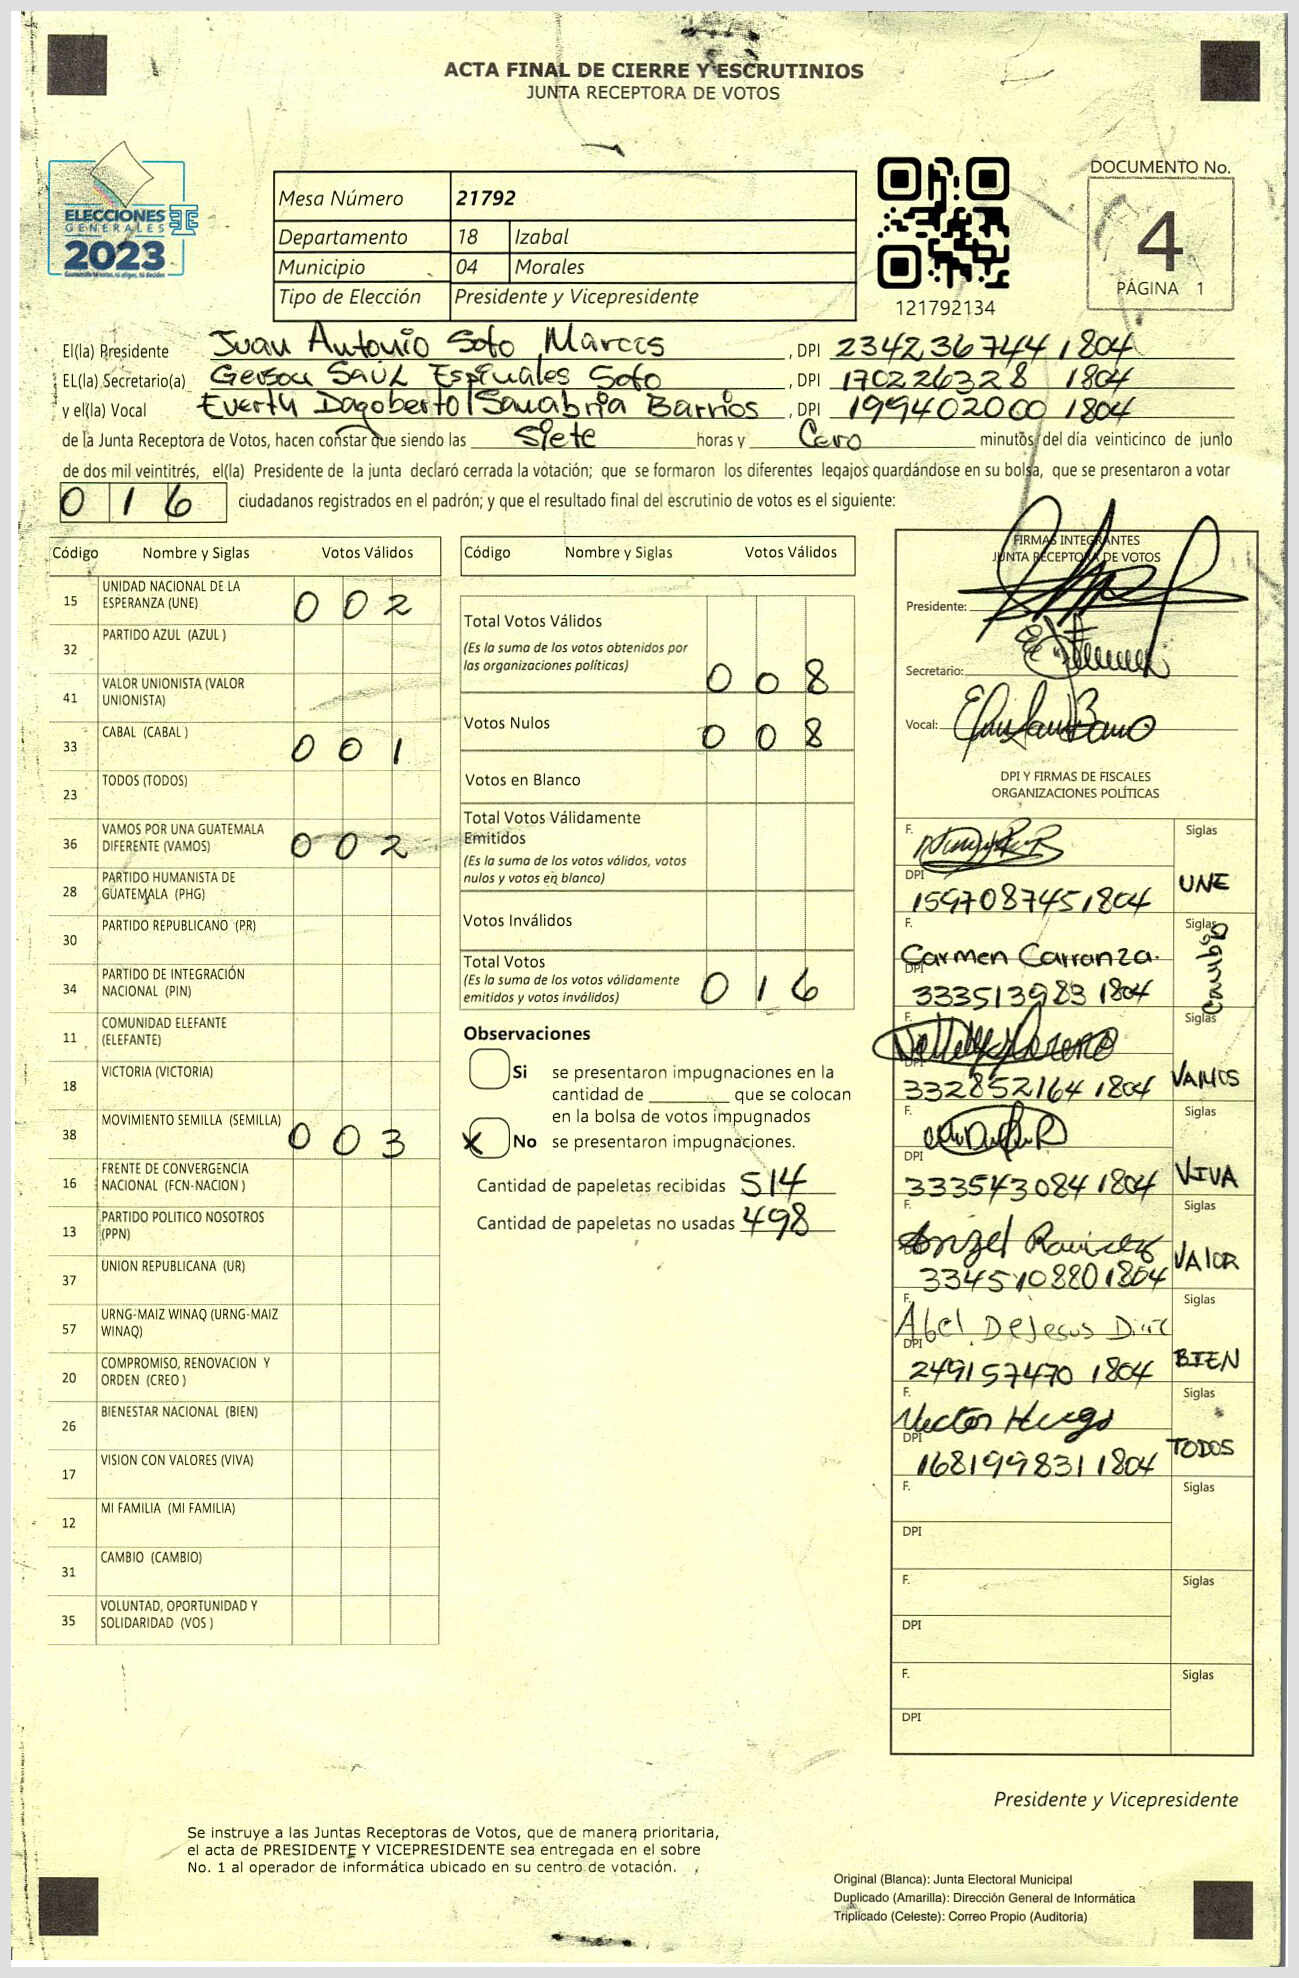 ACTA FINAL DE CIERRE Y ESCRUTINIOS
JUNTA RECEPTORA DE VOTOS
ELECCIONES
GENERALES
2023
Mesa Número 21792
Departamento 18 Izabal
Municipio 04 Morales
Tipo de Elección Presidente y Vicepresidente
121792134
DOCUMENTO No.
4
PÁGINA 1
El(la) Presidente Juan Antonio Soto Marcos, DPI 2342367441804
EL(la) Secretario(a) Gerson Saúl Espinales Soto, DPI 170226328 1804
y el(la) Vocal Everth Dagoberto Sanabria Barrios, DPI 199402000 1804
de la Junta Receptora de Votos, hacen constar que siendo las Siete horas y Cero minutos del día veinticinco de junio
de dos mil veintitrés, el(la) Presidente de la junta declaró cerrada la votación; que se formaron los diferentes legajos guardándose en su bolsa, que se presentaron a votar
016 ciudadanos registrados en el padrón; y que el resultado final del escrutinio de votos es el siguiente:
Código Nombre y Siglas Votos Válidos
15 UNIDAD NACIONAL DE LA
ESPERANZA (UNE) 002
32 PARTIDO AZUL (AZUL )
41 VALOR UNIONISTA (VALOR
UNIONISTA)
33 CABAL (CABAL ) 001
23 TODOS (TODOS)
36 VAMOS POR UNA GUATEMALA
DIFERENTE (VAMOS) 002
28 PARTIDO HUMANISTA DE
GUATEMALA (PHG)
30 PARTIDO REPUBLICANO (PR)
34 PARTIDO DE INTEGRACIÓN
NACIONAL (PIN)
11 COMUNIDAD ELEFANTE
(ELEFANTE)
18 VICTORIA (VICTORIA)
38 MOVIMIENTO SEMILLA (SEMILLA) 003
16 FRENTE DE CONVERGENCIA
NACIONAL (FCN-NACION )
13 PARTIDO POLITICO NOSOTROS
(PPN)
37 UNION REPUBLICANA (UR)
57 URNG-MAIZ WINAQ (URNG-MAIZ
WINAQ)
20 COMPROMISO, RENOVACION Y
ORDEN (CREO )
26 BIENESTAR NACIONAL (BIEN)
17 VISION CON VALORES (VIVA)
12 MI FAMILIA (MI FAMILIA)
31 CAMBIO (CAMBIO)
35 VOLUNTAD, OPORTUNIDAD Y
SOLIDARIDAD (VOS )
Código Nombre y Siglas Votos Válidos
Total Votos Válidos
(Es la suma de los votos obtenidos por
las organizaciones políticas) 008
Votos Nulos 008
Votos en Blanco
Total Votos Válidamente
Emitidos
(Es la suma de los votos válidos, votos
nulos y votos en blanco)
Votos Inválidos
Total Votos
(Es la suma de los votos válidamente
emitidos y votos inválidos) 016
Observaciones
Si se presentaron impugnaciones en la
cantidad de ________ que se colocan
en la bolsa de votos impugnados
X No se presentaron impugnaciones.
Cantidad de papeletas recibidas 514
Cantidad de papeletas no usadas 498
FIRMAS INTEGRANTES
JUNTA RECEPTORA DE VOTOS
Presidente:
Secretario:
Vocal:
DPI Y FIRMAS DE FISCALES
ORGANIZACIONES POLÍTICAS
F. Siglas
DPI UNE
1597087451804
F. Siglas
Carmen Carranza. Cambio
DPI
333513983 1804
F. Siglas
DPI
332852164 1804 VAMOS
F. Siglas
DPI
333543084 1804 VIVA
F. Siglas
Angel Ramirez VALOR
3345108801804
F. Siglas
Abel DeJesus
DPI
249157470 1804 BIEN
F. Siglas
Hector Hugo
DPI TODOS
1681998311804
F. Siglas
DPI
F. Siglas
DPI
F. Siglas
DPI
Presidente y Vicepresidente
Se instruye a las Juntas Receptoras de Votos, que de manera prioritaria,
el acta de PRESIDENTE Y VICEPRESIDENTE sea entregada en el sobre
No. 1 al operador de informática ubicado en su centro de votación.
Original (Blanca): Junta Electoral Municipal
Duplicado (Amarilla): Dirección General de Informática
Triplicado (Celeste): Correo Propio (Auditoría)